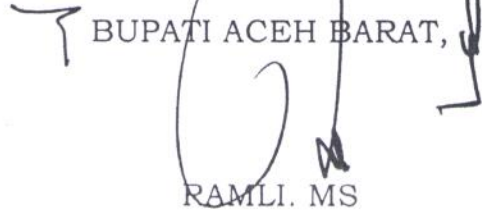 BUPATI ACEH BARAT,
RAMLI. MS